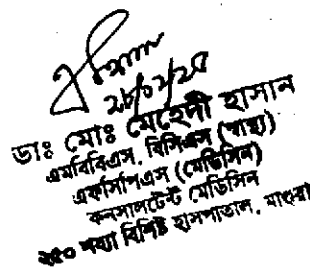 ডাঃ মোঃ মেহেদী হাসান
এমবিবিএস, বিসিএস (স্বাস্থ্য)
এফসিপিএস (মেডিসিন)
কনসালটেন্ট মেডিসিন
২৫০ শয্যা বিশিষ্ট হাসপাতাল, মাগুরা